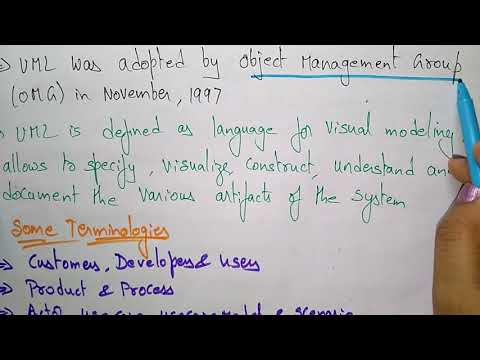 ⇒ UML was adopted by Object Management Group
(OMG) in November, 1997
UML is defined as language for visual modeling
allows to specify, visualize, construct, understand an
document the various artifacts of the system
Some Terminologies
⇒ Customers, Developers & Users
⇒ Product & Process